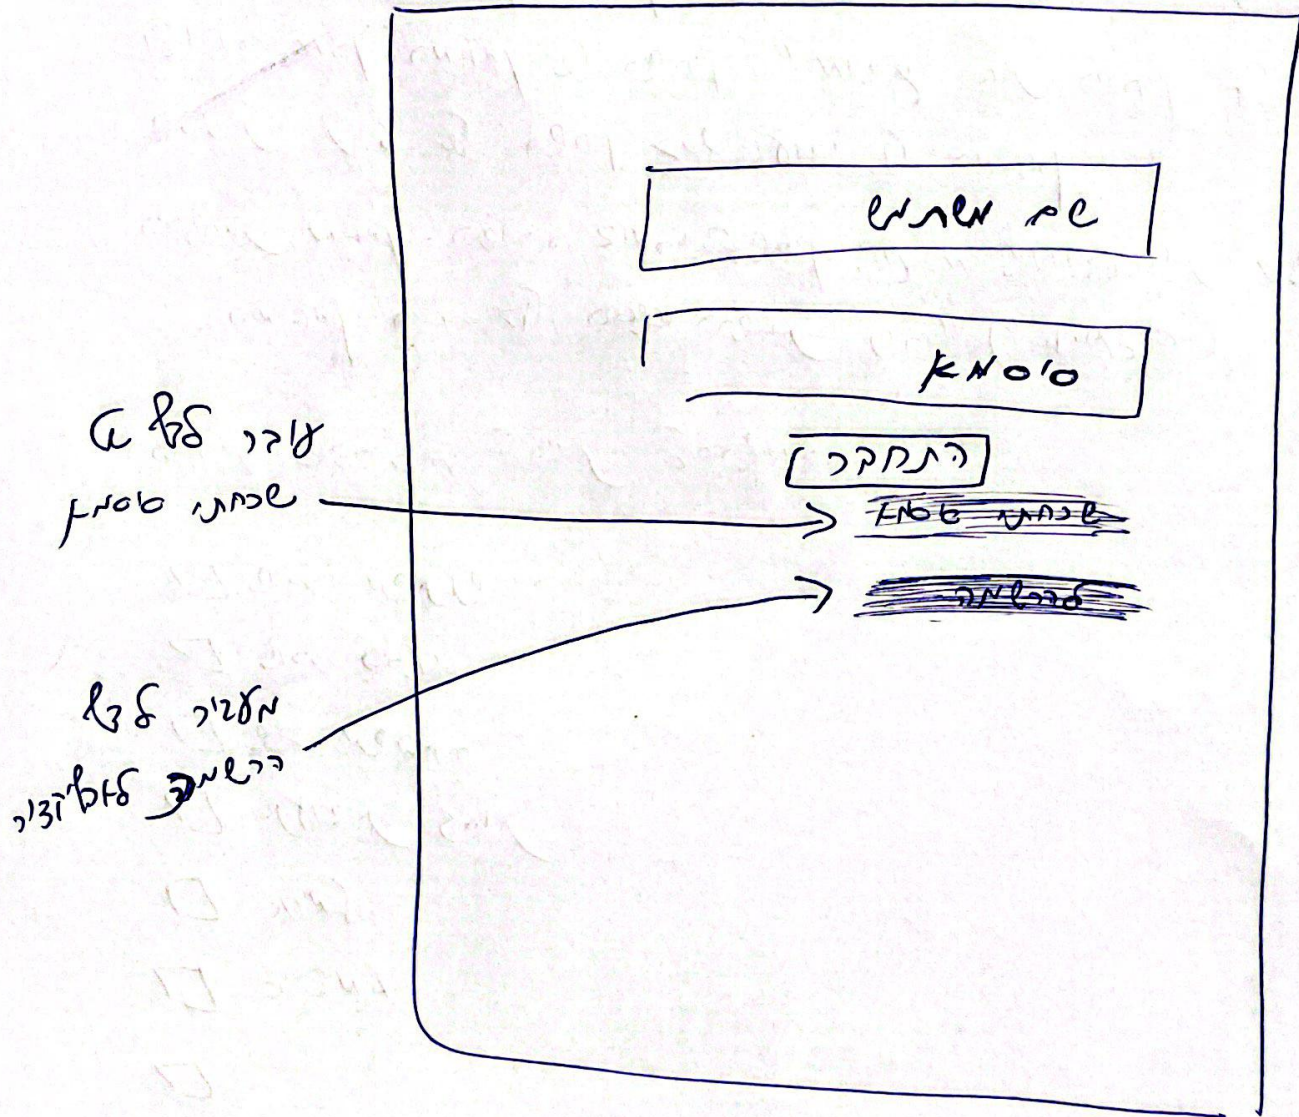 שם משתמש
סיסמא
התחבר
שכחתי סיסמא
להרשמה
עובר לדף של
שכחתי סיסמא
מעביר לדף
הרשמה